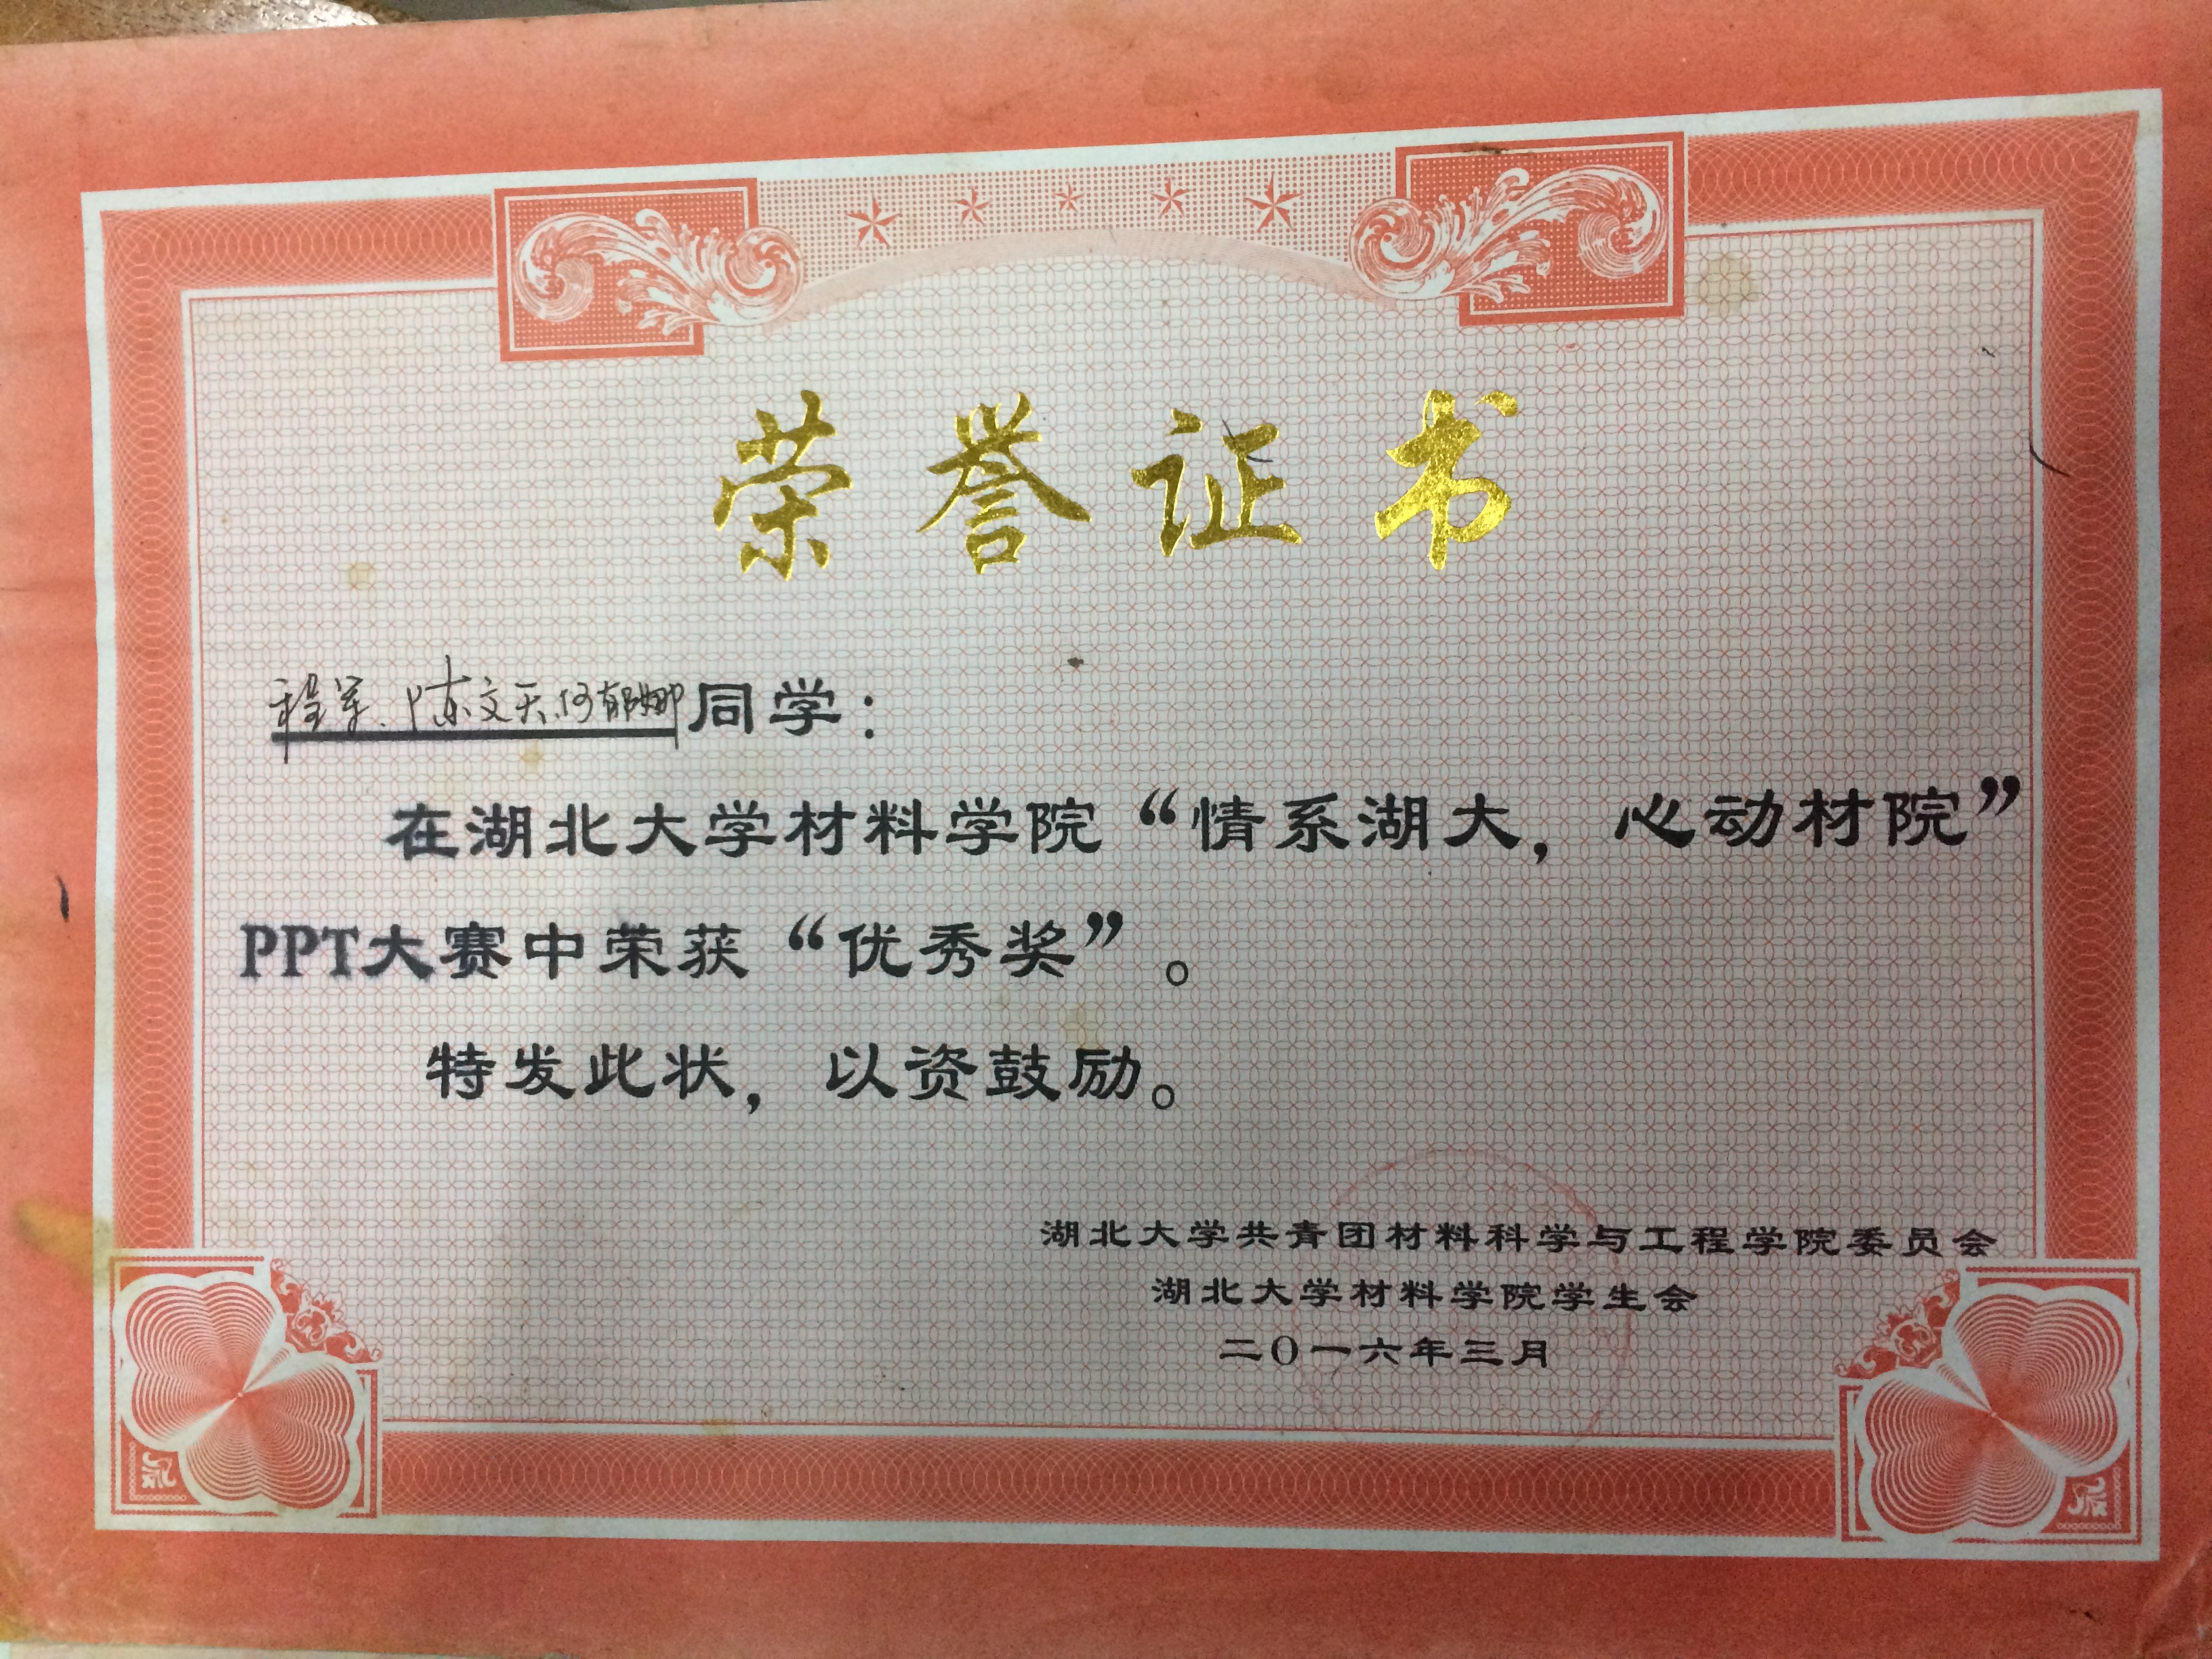 荣誉证书
程军、陈文天、何郁娜同学：
在湖北大学材料学院“情系湖大，心动材院”
PPT大赛中荣获“优秀奖”。
特发此状，以资鼓励。
湖北大学共青团材料科学与工程学院委员会
湖北大学材料学院学生会
二O一六年三月